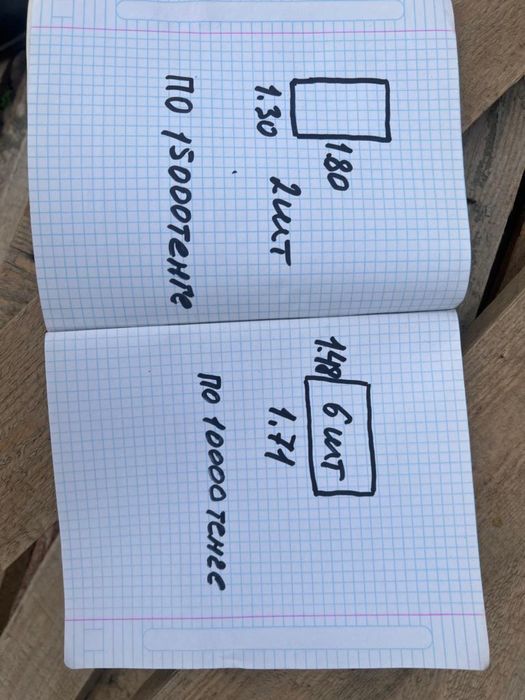 1.80
1.30 2шт
ПО 15000ТЕНГЕ
1.48 6 шт
1.71
ПО 10000 ТЕНГЕ